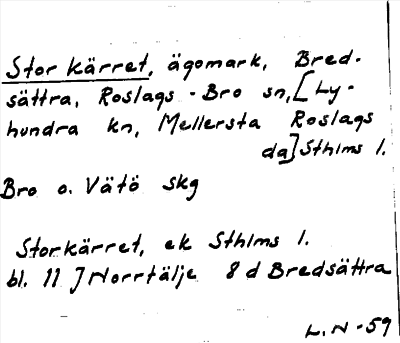 Storkärret, ägomark, Bred-
sättra, Roslags-Bro sn, [Ly-
hundra kn, Mellersta Roslags
da] Sthlms l.
Bro o. Vätö skg
Storkärret, ek Sthlms l.
bl. 11 J Norrtälje 8 d Bredsättra
L.N-59